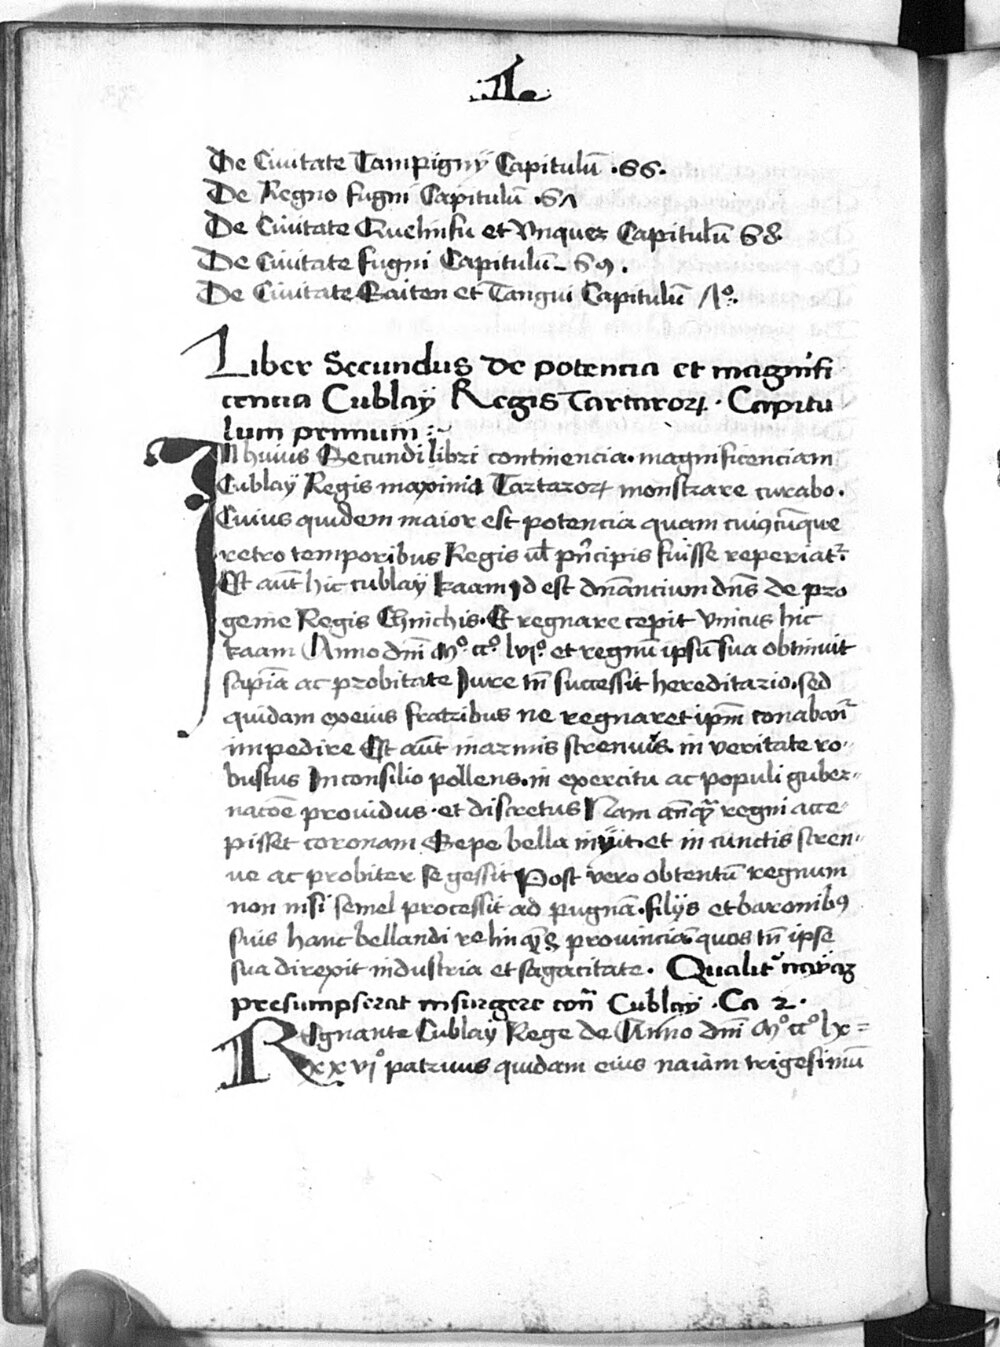 .II.
De Ciuitate Tampigny Capitulū .66.
De Regno fugni Capitulū .6Λ
De Ciuitate Quelinfu et Vnquez Capitulū 68.
De Ciuitate fugni Capitulū 69.
De Ciuitate Zaiten et Tangui Capitulū Λ°.
Liber Secundus de potencia et magnifi
cencia Cublaÿ Regis Tartaroꝝ . Capitu
lum primum
In huius Secundi libri continencia. magnificenciam
Cublaÿ Regis maximi Tartaroꝝ monstrare curabo.
Cuius quidem maior est potencia quam cuiꝰcūque
retro temporibus Regis ul̄ pn̄cipis fuisse reperiat᷑.
Est aūt hic cublaÿ kaam Id est dn̄ancium dn̄s de pro
genie Regis Chinchis. Et regnare cepit vnicus hic
kaam Anno dn̄i M° cc° lvi° et regnū ipsū sua obtinuit
sapīa ac probitate Iure tn̄ successit hereditario. sed
quidam ex eius fratribus ne regnaret ip̄m conaban᷑
impedire Est aūt in armis strenuus. in veritate ro-
bustus In consilio pollens. in exercitu ac populi guber-
nacōe prouidus. et discretus Nam an̄qꝫ regni acce
pisset coronam Sepe bella iniit. et in cunctis stren-
ue ac probiter se gessit Post vero obtentū regnum
non nisi semel processit ad pugnā. filijs et baronibꝰ
suis hanc bellandi relinquēs prouinciā quos tn̄ ipse
sua direxit industria et sagacitate. Qualit᷑ nayā
presumpserat insurgere con̄ Cublaÿ . Ca 2.
Regnante Cublaÿ Rege de Anno dn̄i M° cc° lx=
xxvi° patruus quidam eius naiam trigesimū